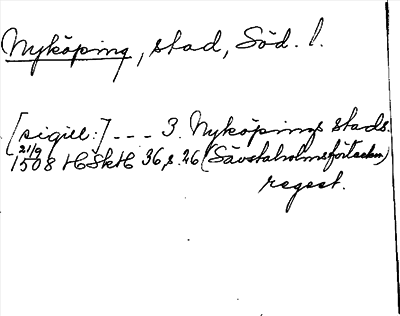 Nyköping, stad, Söd. l.
[sigill:] --- 3. Nyköpings stads.
21/9
1508 HSkH 36, s. 26 (Säfstaholmsförteckn)
regest.